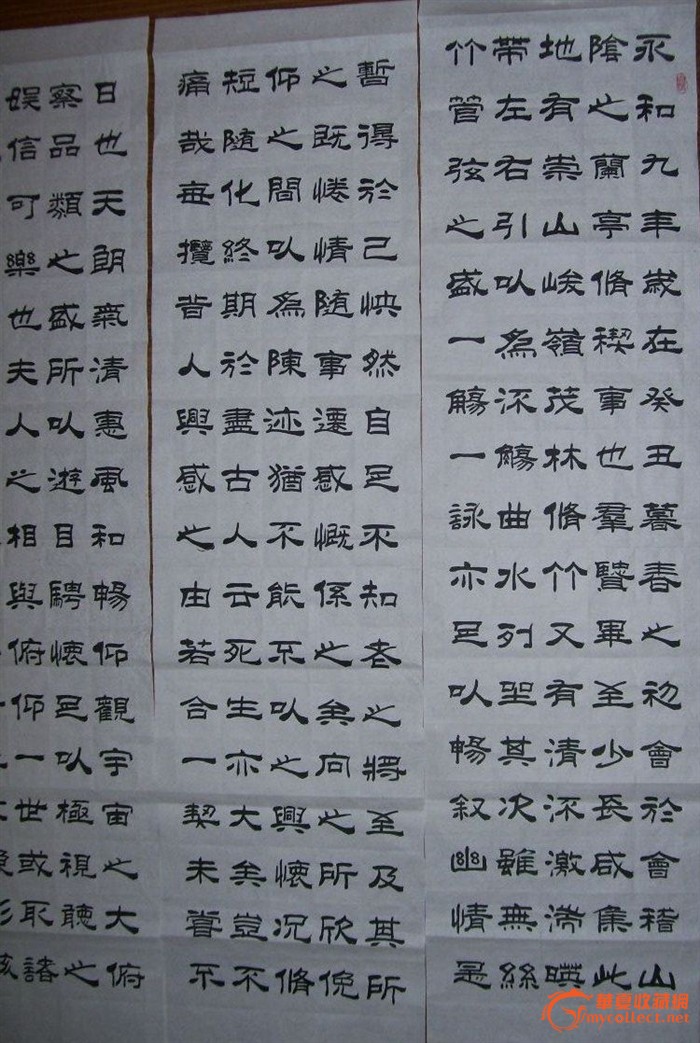 永和九年歲在癸丑暮春之初會於會稽山
陰之蘭亭脩禊事也羣賢畢至少長咸集此
地有崇山峻嶺茂林脩竹又有清流激湍映
帶左右引以為流觴曲水列坐其次雖無絲
竹管弦之盛一觴一詠亦足以暢叙幽情是
暫得於己怏然自足不知老之將至及其所
之既惓情隨事遷感慨係之矣向之所欣俛
仰之間以為陳迹猶不能不以之興懷況脩
短隨化終期於盡古人云死生亦大矣豈不
痛哉每攬昔人興感之由若合一契未嘗不
日也天朗氣清惠風和暢仰觀宇宙之大俯
察品類之盛所以遊目騁懷足以極視聽之
娛信可樂也夫人之相與俯仰一世或取諸
華夏收藏網
mycollect.net